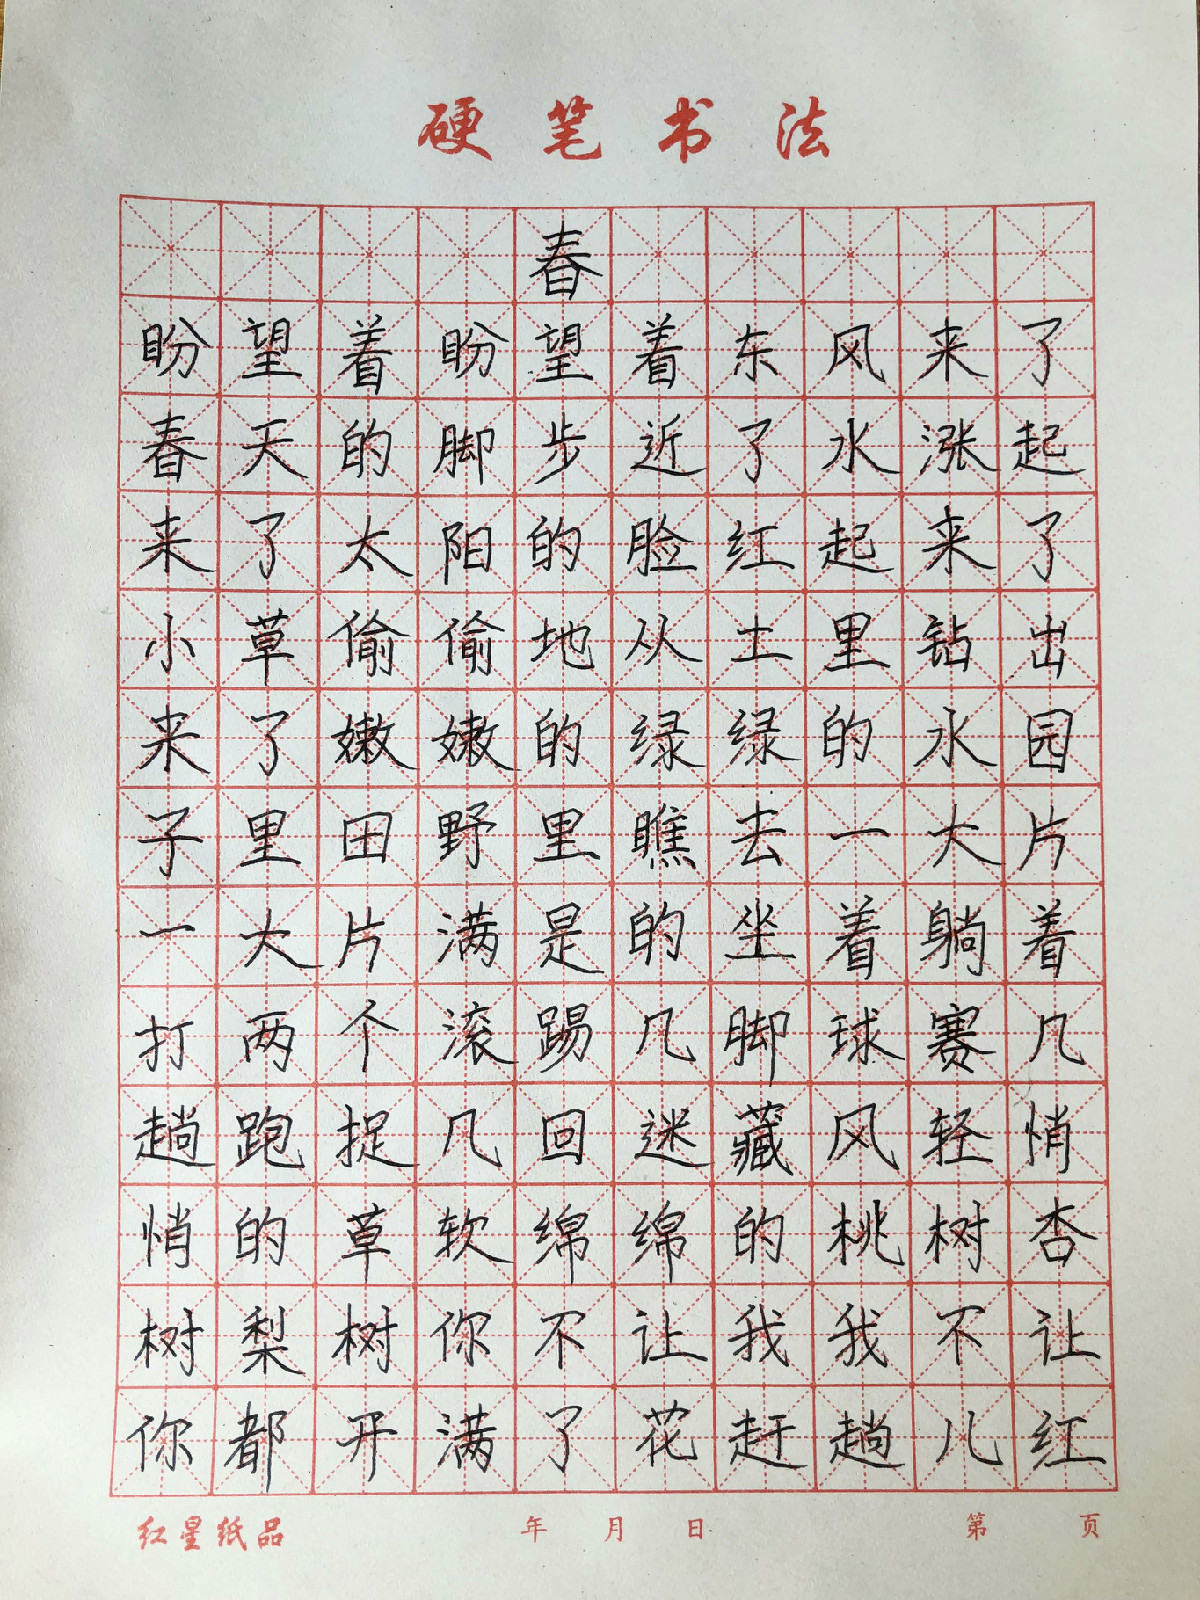 硬笔书法
春
盼望着盼望着东风来了
春天的脚步近了水涨起
来了太阳的脸红起来了
小草偷偷地从土里钻出
来了嫩嫩的绿绿的水园
子里田野里瞧去一大片
一大片满是的坐着躺着
打两个滚踢几脚球赛几
趟跑捉几回迷藏风轻悄
悄的草软绵绵的桃树杏
树梨树你不让我我不让
你都开满了花赶趟儿红
红星纸品 年 月 日 第 页